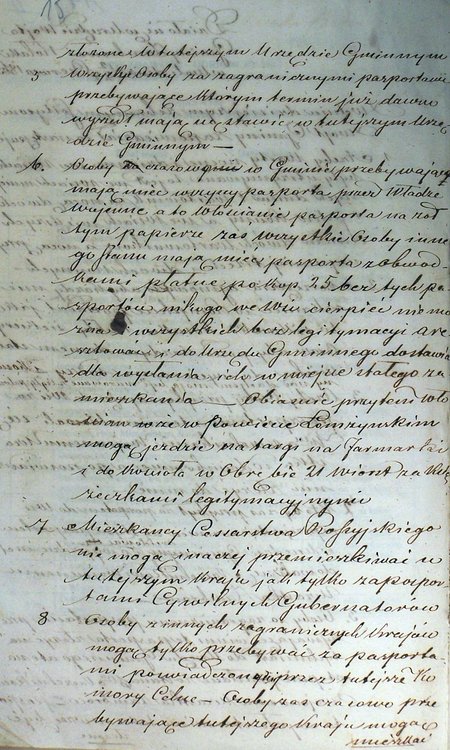 15
złożone w tutejszym Urzędzie Gminnym
5 Wszystkie Osoby za zagranicznymi pasportami
przebywające którym termin już dawno
wyszedł mają się stawić w tutejszym Urzę-
dzie Gminnym —
6. Osoby za czasowemi w Gminie przebywające
mają mieć wszyscy pasporta przez Władze
wojenne a to Włościanie pasporta na żół
tym papierze zaś wszystkie Osoby inne
go stanu mają mieć pasporta z obwód-
kami płatne po kop. 25 bez tych pa-
szportów nikogo we Wsi cierpieć nie mo
żna i wszystkich bez legitymacyi are
sztować i do Urzędu Gminnego dostawić
dla wysłania ich w miejsce stałego za
mieszkania — Objaśnić przytem Wło
ścian że w Powiecie Łomżyńskim
mogą jeździć na targi na Jarmarki
i do Kościoła w Obrębie 21 Wiorst za Ksią
żeczkami legitymacyjnymi
7 Mieszkańcy Cesarstwa Rossyjskiego
nie mogą inaczej przemieszkiwać w
tutejszym Kraju jak tylko za paspor
tami Cywilnych Gubernatorów
8 Osoby z innych zagranicznych Krajów
mogą tylko przebywać za pasporta
mi poświadczonymi przez tutejsze Ko
mory Celne — Osoby zaś czasowo prze
bywające tutejszego Kraju mogą
mieszkać